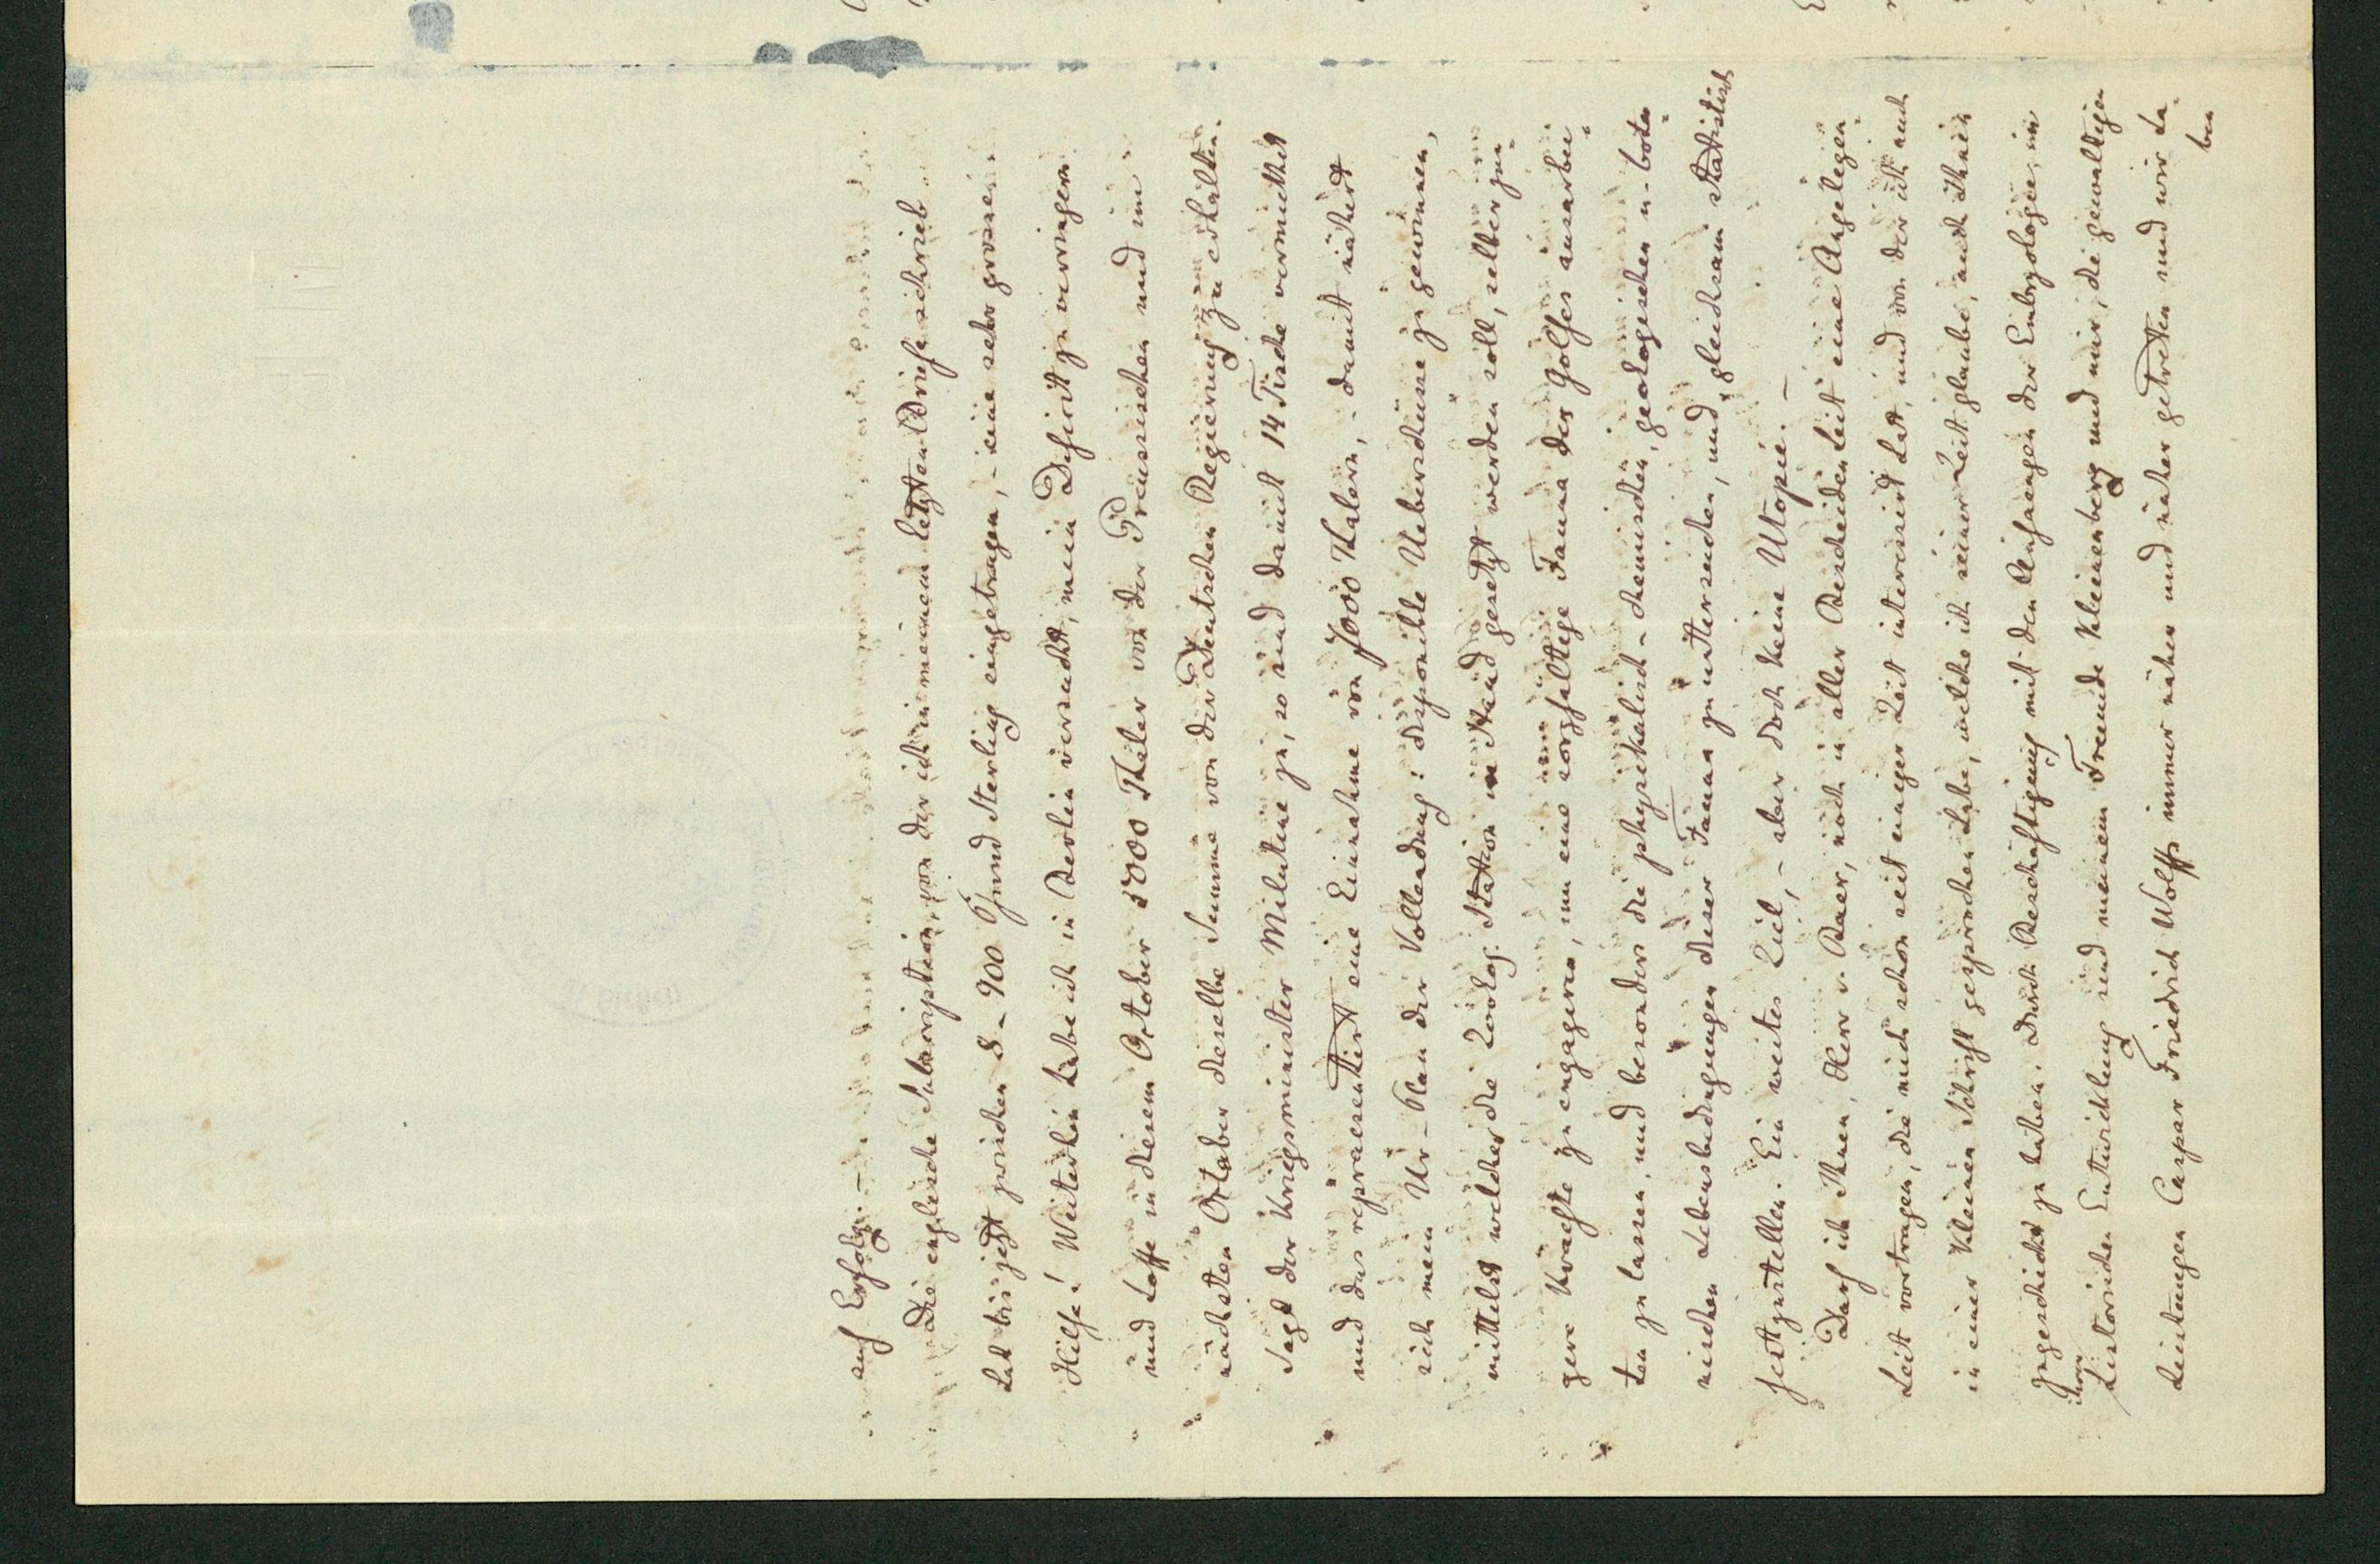 auf Erfolg. –
Die englische Subscription, von der ich in meinem letzten Briefe schrieb
hat bis jetzt zwischen 8–900 Pfund Sterling eingetragen, – eine sehr grosse
Hilfe! Weiterhin habe ich in Berlin versucht, mein Deficit zu verringern
und hoffe in diesem October 5000 Thaler von der Preussischen und im
nächsten October dieselbe Summe von der Deutschen Regierung zu erhalten.
Sagt der Kriegsminister Milutine zu, so sind damit 14 Tische vermiethet
und das repraesentirt eine Einnahme von 7000 Thalern, – damit nähert
sich mein Ur-Plan der Vollendung: disponible Ueberschüsse zu gewinnen,
mittelst welcher die Zoolog. Station in Stand gesetzt werden soll, selber jün-
gere Kraefte zu engagiren, um eine sorgfältige Fauna des Golfes ausarbei-
ten zu lassen, und besonders die physikalisch-chemischen, geologischen u. bota-
nischen Lebensbedingungen dieser Fauna zu untersuchen, und gleichsam statistisch
festzustellen. Ein weites Ziel, – aber doch keine Utopie. –
Darf ich Ihnen, Herr v. Baer, noch in aller Bescheidenheit eine Angelegen-
heit vortragen, die mich schon seit einiger Zeit interessirt hat, und von der ich auch
in einer kleinen Schrift gesprochen habe, welche ich seiner Zeit glaube, auch Ihnen
zugeschickt zu haben. Durch Beschäftigung mit den Anfaengen der Embryologie, in
ihrer
historischen Entwicklung sind meinem Freunde Kleinenberg und mir, die gewaltigen
Leistungen Caspar Friedrich Wolffs immer näher und näher getreten und wir ha-
ben